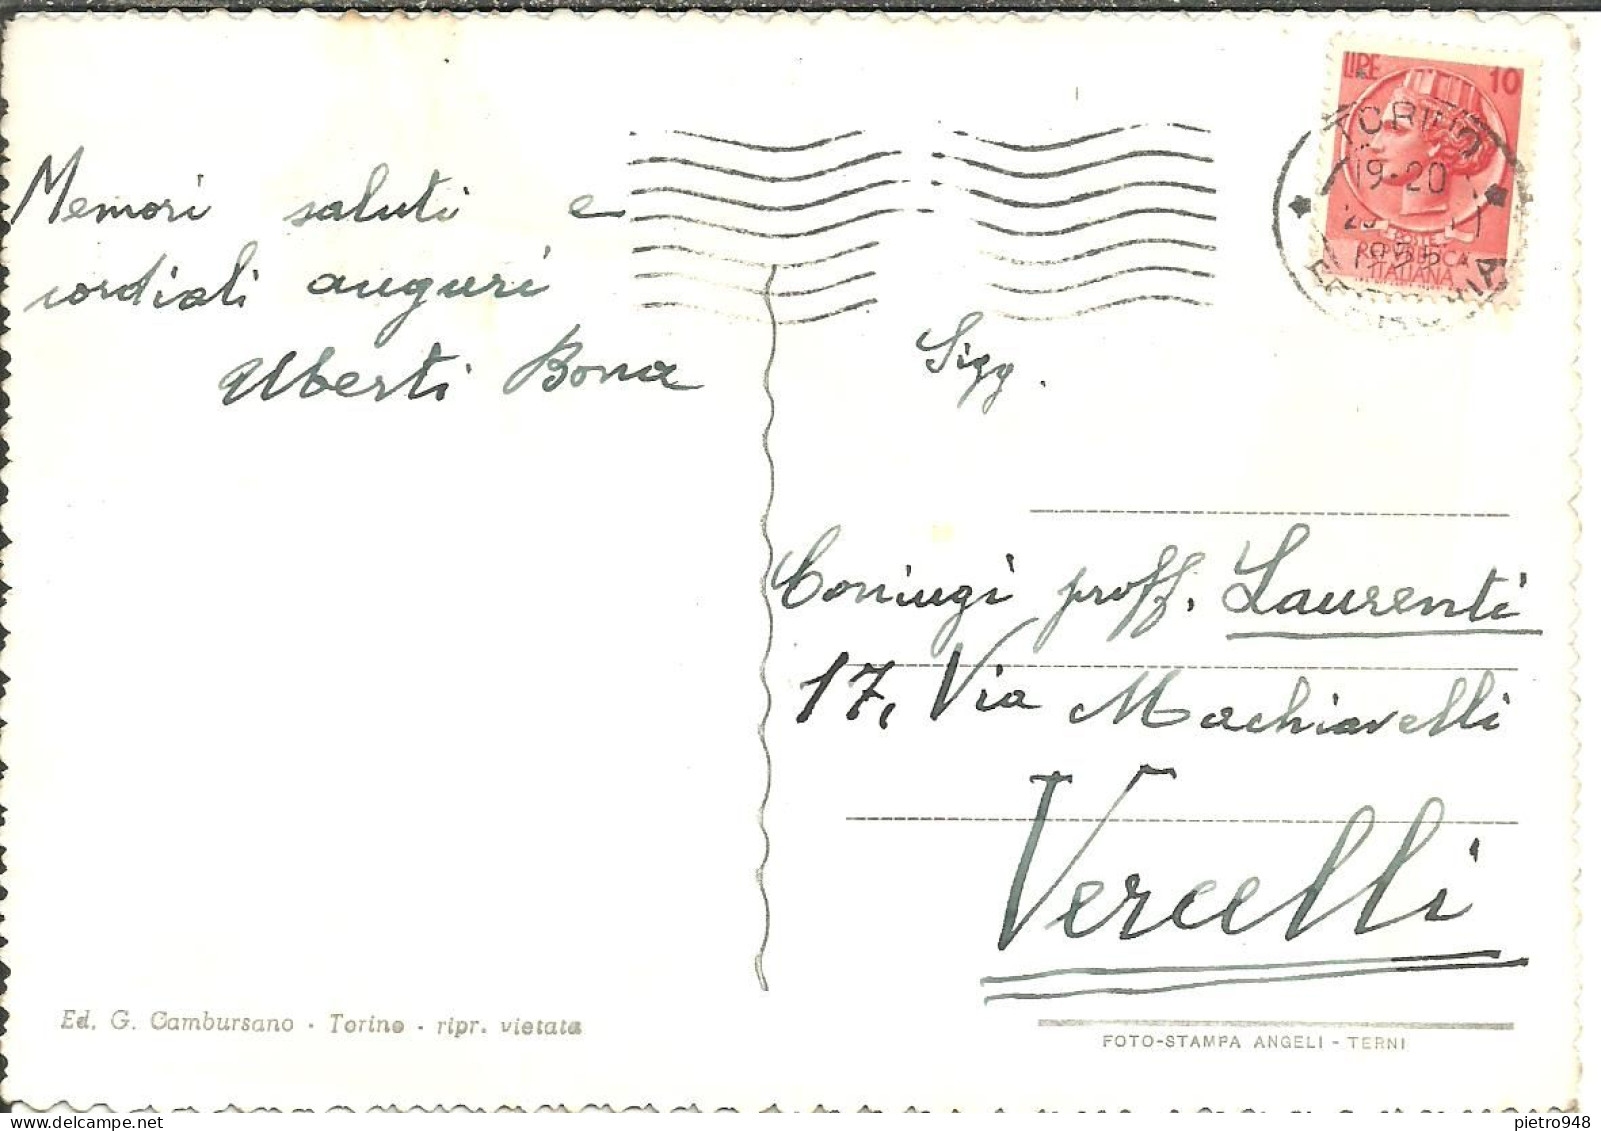 Memori saluti e
cordiali auguri
Uberti Bona
Ed. G. Cambursano - Torino - ripr. vietata
LIRE 10
TORINO
19-20
POSTE
REPUBBLICA
ITALIANA
FERROVIA
Sigg.
Coniugi proff. Laurenti
17, Via Machiavelli
Vercelli
FOTO-STAMPA ANGELI - TERNI
delcampe.net
pietro948